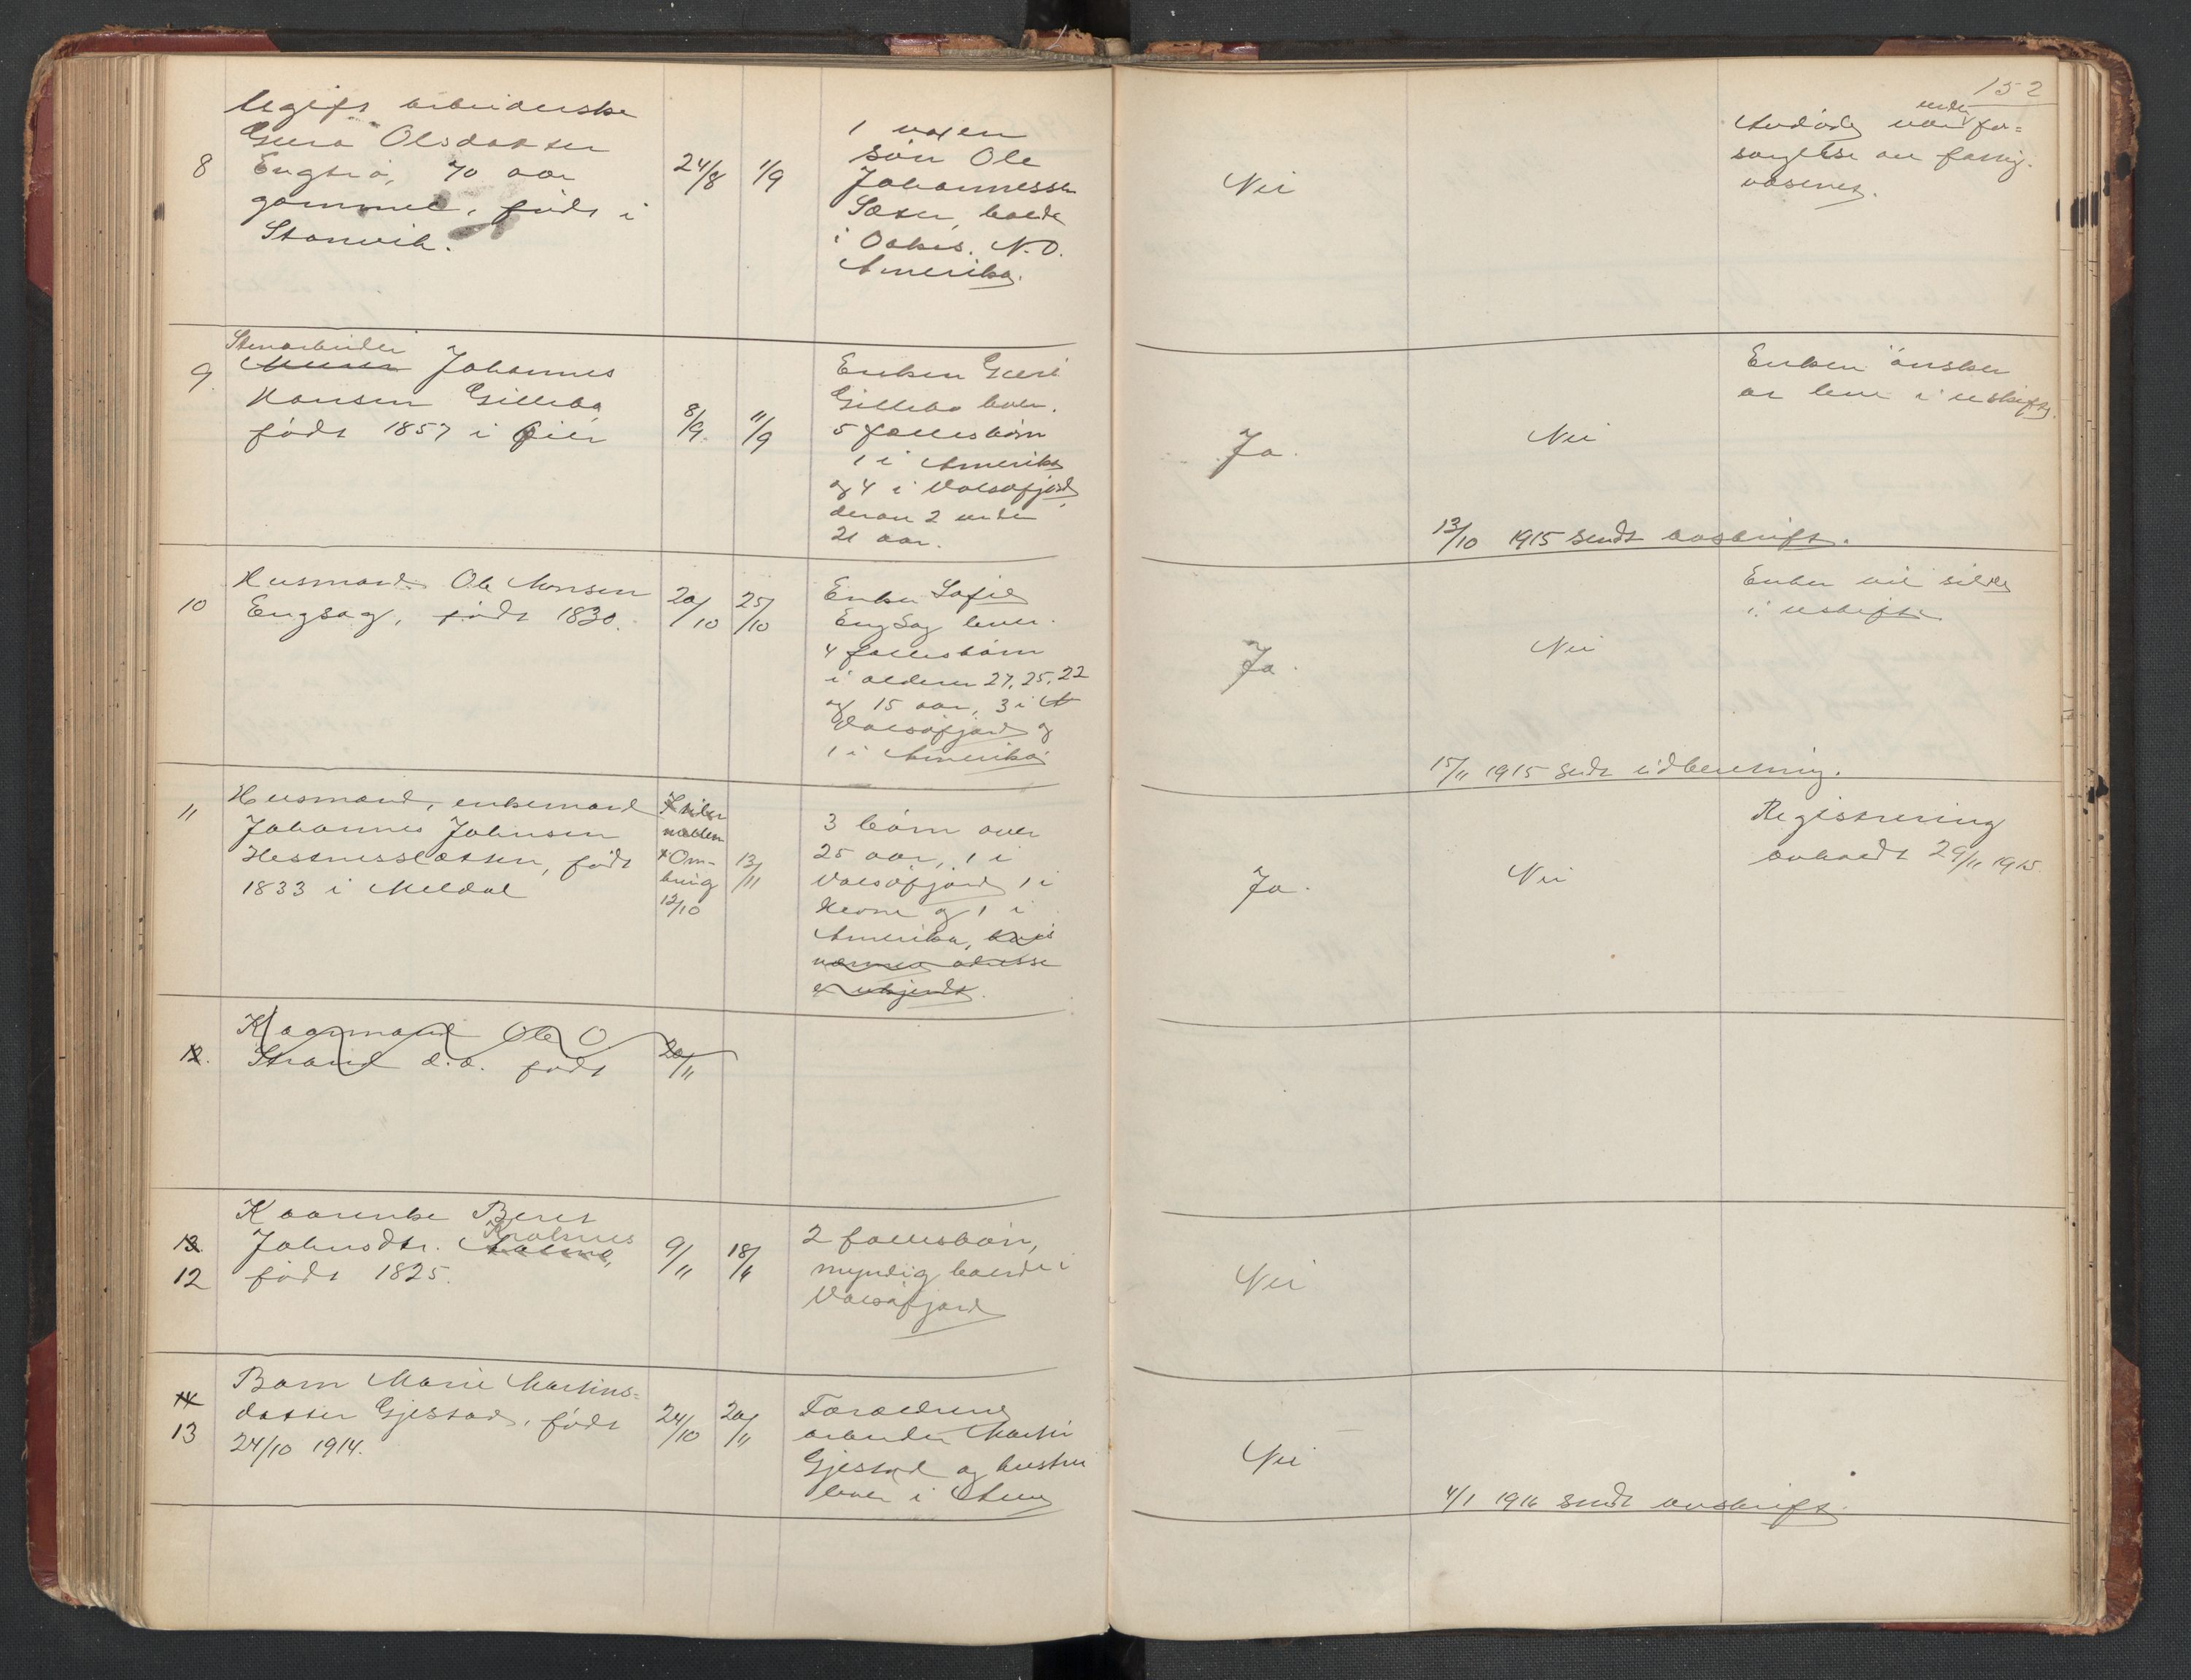 152
8
Ugift arbeiderske
Guro Olsdatter
Engsrø, 70 aar
gammel, født i
Stamvik.
24/8
1/9
1 voxen
søn Ole
Johannessen
Sæter, boede
i Oakes. N.D.
Amerika.
Nei
Avdøde var under for-
sørgelse av fattig-
væsenet.
9
Stenarbeider
Johannes
Hansen Gillebo
født 1857 i Øier
8/9.
11/9
Enken Guri
Gillebo lever.
5 fællesbørn
1 i Amerika
og 4 i Valsøfjord,
derav 2 under
21 aar.
Ja.
Nei
Enken ønsker
at leve i uskifte.
13/10 1915 sendt avskrift.
10
Husmand Ole Monsen
Engsag, født 1830.
20/10
25/10
Enke Sofie
Engsag lever.
4 fællesbørn
i alderen 27, 25, 22
og 15 aar, 3 i
Valsøfjord og
1 i Amerika
Ja.
Nei
Enken vil sidde
i uskifte.
15/11 1915 sendt udberetning.
11
Husmand, enkemand
Johannes Johnsen
Hestnesslætten, født
1833 i Meldal
12/10
13/11
3 børn over
25 aar, 1 i
Valsøfjord, 1 i
Hevne og 1 i
Amerika, hvis
nærmere adresse
er ukjendt.
Ja.
Nei
Registrering
avholdt 29/11 1915
12.
Kaarmand Ole O.
Strand d.æ. født
20/11
13.
12
Kaarenke Beret
Johnsdtr.
født 1825.
9/11
18/11
2 fællesbørn,
myndig boende i
Valsøfjord
Nei
14
13
Barn Marie Martins-
datter Gjestad, født
24/10 1914.
24/10
20/11
Forældrene
arbeider Martin
Gjestad og hustru
lever i
Nei
4/1 1916 sendt avskrift.